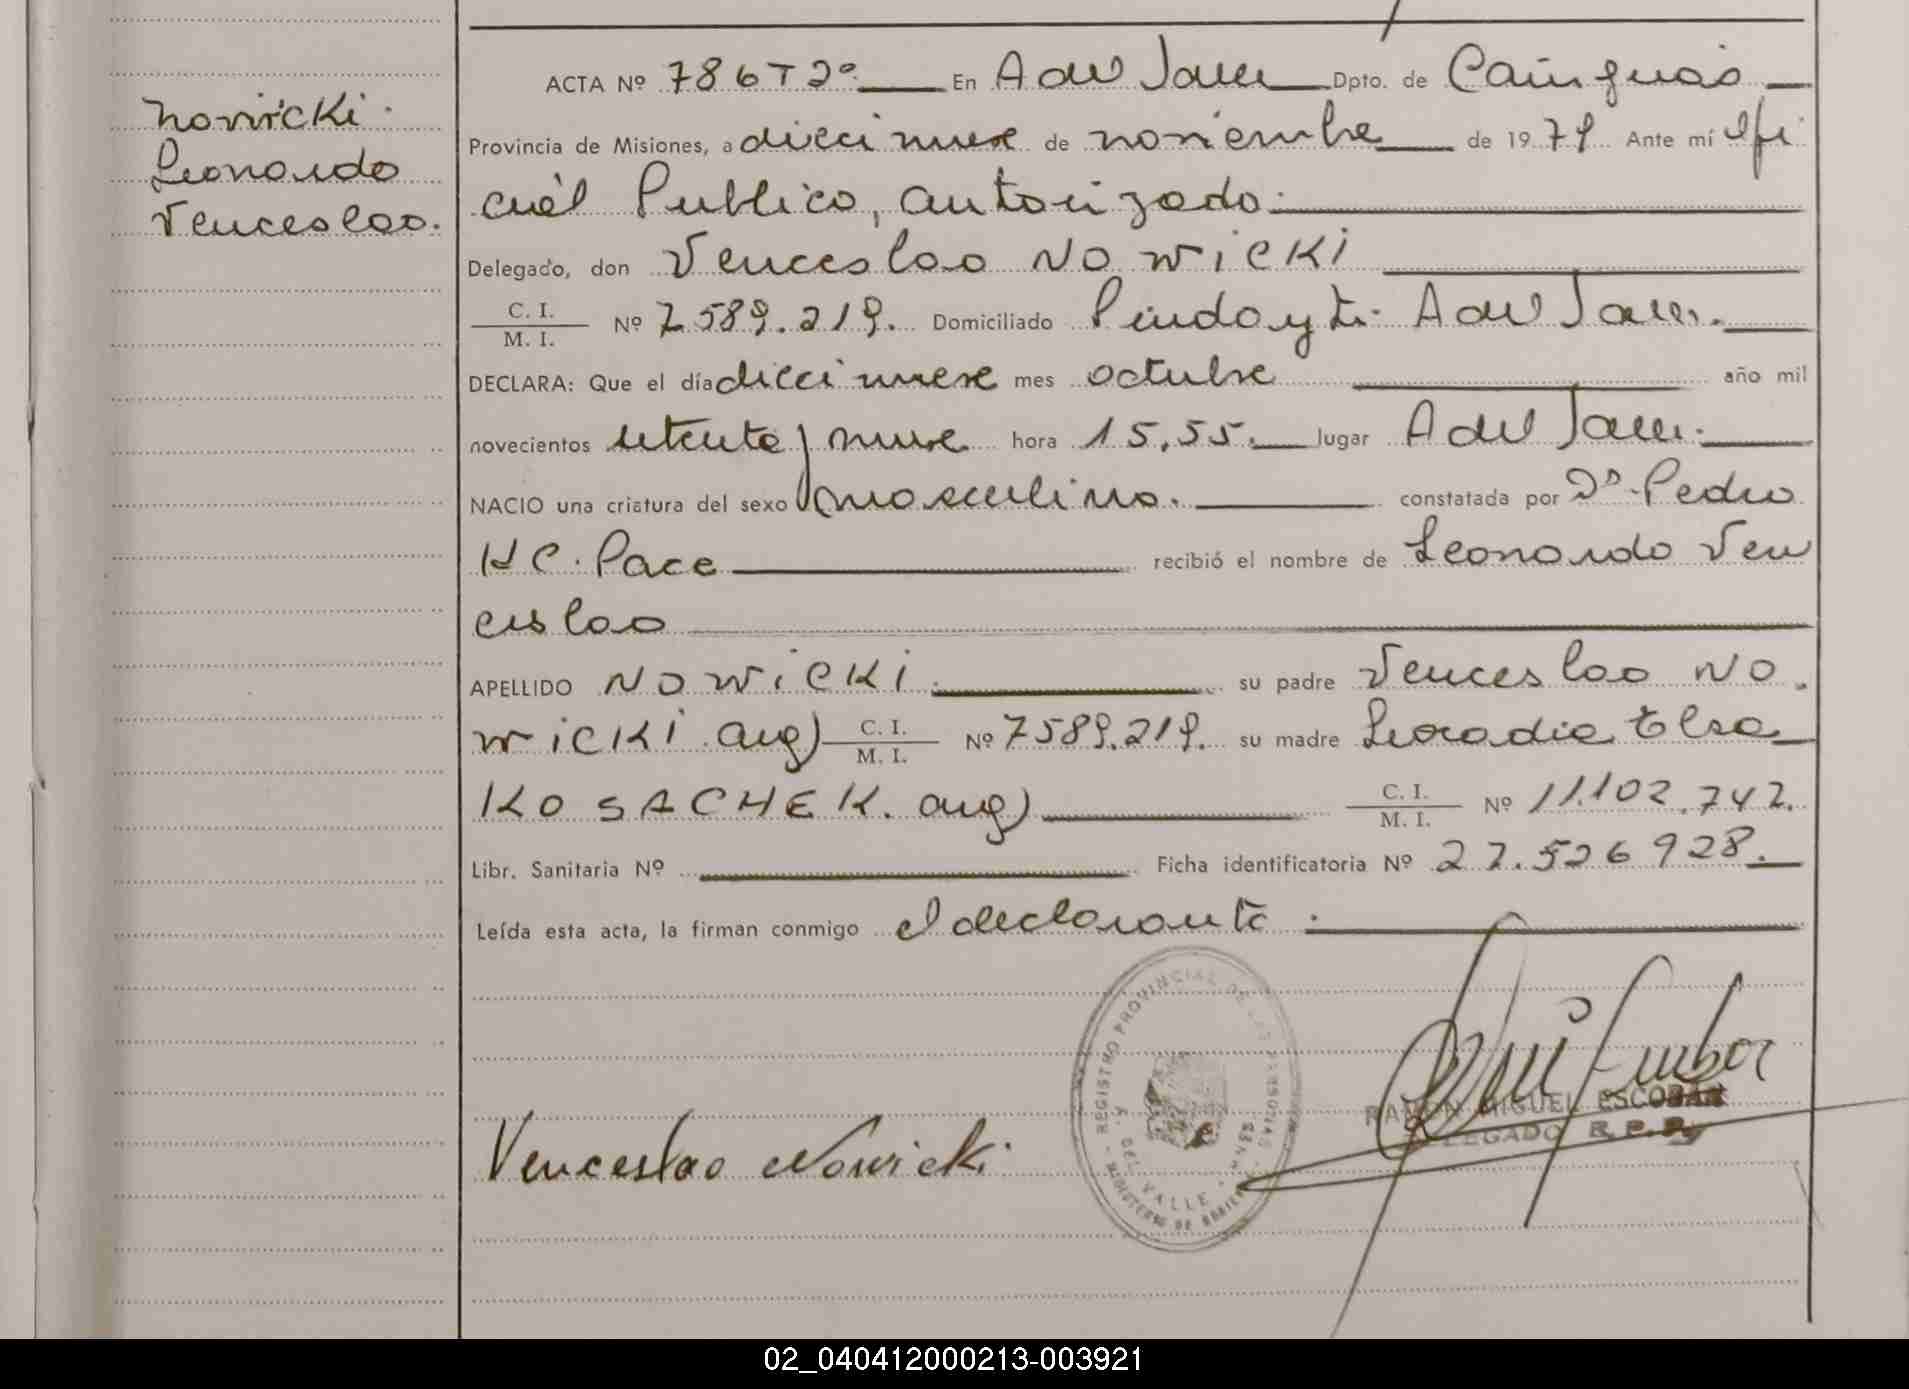 Nowicki.
Leonardo
Venceslao.
ACTA Nº 786 T 2º. En A del Valle Dpto. de Cainguás
Provincia de Misiones, a diecinueve de noviembre de 1979. Ante mí Ofi
cial Publico, autorizado.
Delegado, don Venceslao NOWICKI
C. I.
M. I. Nº 7.589.219. Domiciliado Pindoyti. A del Valle.
DECLARA: Que el día diecinueve mes octubre año mil
novecientos setenta y nueve hora 15,55. lugar A del Valle.
NACIO una criatura del sexo masculino. constatada por Dº. Pedro
H C. Pace recibió el nombre de Leonardo Ven
ceslao
APELLIDO NOWICKI. su padre Venceslao NO
WICKI. arg) C. I. M. I. Nº 7589.219. su madre Leocadia Elsa
KOSACHEK. arg) C. I. M. I. Nº 11.102.742.
Libr. Sanitaria Nº Ficha identificatoria Nº 27.526928.
Leída esta acta, la firman conmigo el declarante.
REGISTRO PROVINCIAL DE LAS PERSONAS
A. DEL VALLE
MINISTERIO DE GOBIERNO
RAMON MIGUEL ESCOBAR
DELEGADO R. P. P.
Venceslao Nowicki.
02_040412000213-003921